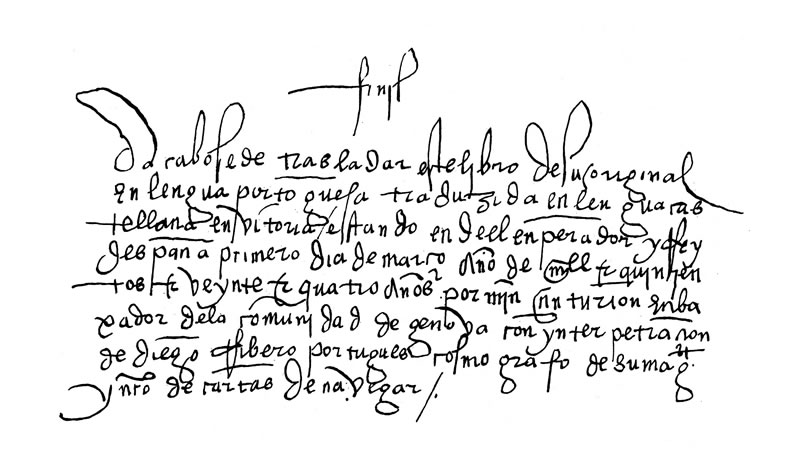 finis
Acabose de trasladar este lybro de su original
en lengua portoguesa traduzida en lengua cas
tellana en vitoria estando en de el enperador y Rey
despana primero dia de março año de mill e quynyen
tos e veynte e quatro años por myn centurion enba
xador dela comunydad de genova con ynterpetraçion
de diego Ribero portugues cosmografo de su magt
y mro de cartas de navegar /.